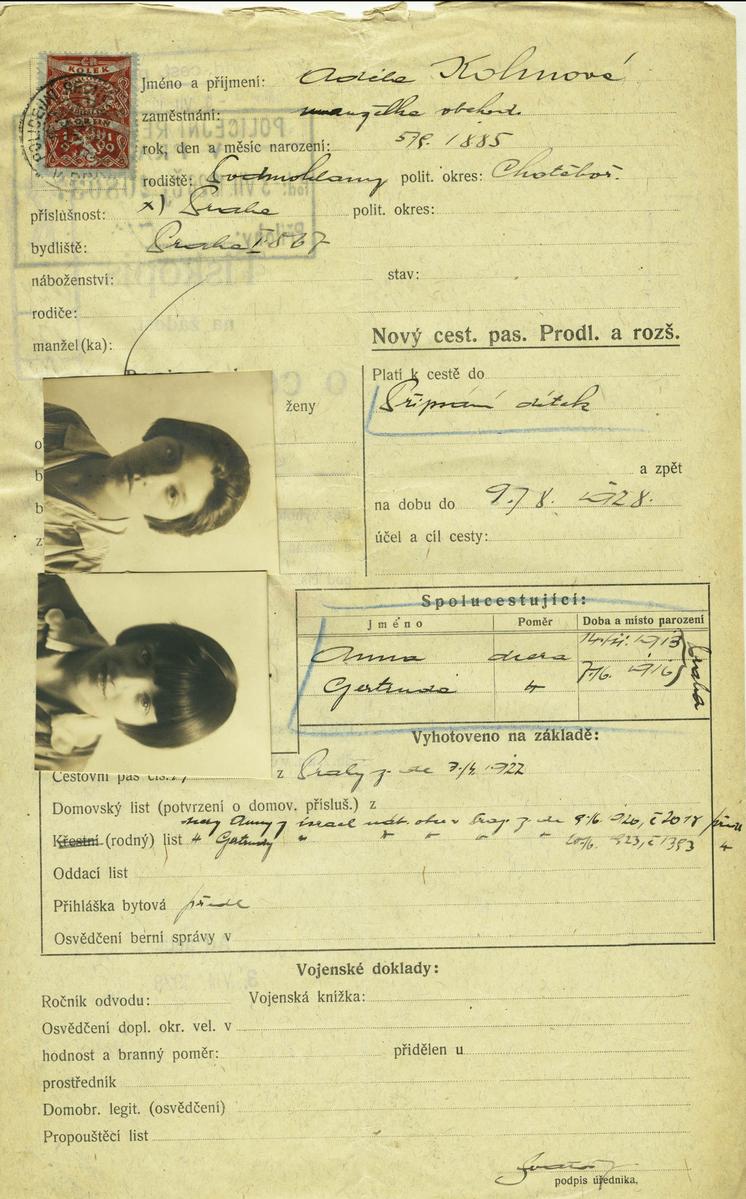 KOLEK
Jméno a příjmení: Adéla Kohnová
zaměstnání: manželka obchod.
rok, den a měsíc narození: 5/9. 1885
rodiště: Podmoklany polit. okres: Chotěboř.
příslušnost: x) Praha polit. okres:
bydliště: Praha I 867
náboženství: stav:
rodiče:
manžel(ka):
Nový cest. pas. Prodl. a rozš.
Platí k cestě do
ženy
Připsání dítek
a zpět
na dobu do 9./8. 1928.
účel a cíl cesty:
Spolucestující:
jméno Poměr Doba a místo narození
Anna dcera 1913
Gertruda " 7/6. 1916 Praha
Vyhotoveno na základě:
Cestovní pas čís. z Prahy z. de 1922
Domovský list (potvrzení o domov. přísluš.) z
Anny z israel. náb. obce v Praze z. de 9/6 920, č 2018
Křestní (rodný) list " Gertrudy " " " " " 923, č 1393 "
Oddací list
Přihláška bytová předl
Osvědčení berní správy v
Vojenské doklady:
Ročník odvodu: Vojenská knížka:
Osvědčení dopl. okr. vel. v
hodnost a branný poměr: přidělen u
prostředník
Domobr. legit. (osvědčení)
Propouštěcí list
podpis úředníka.